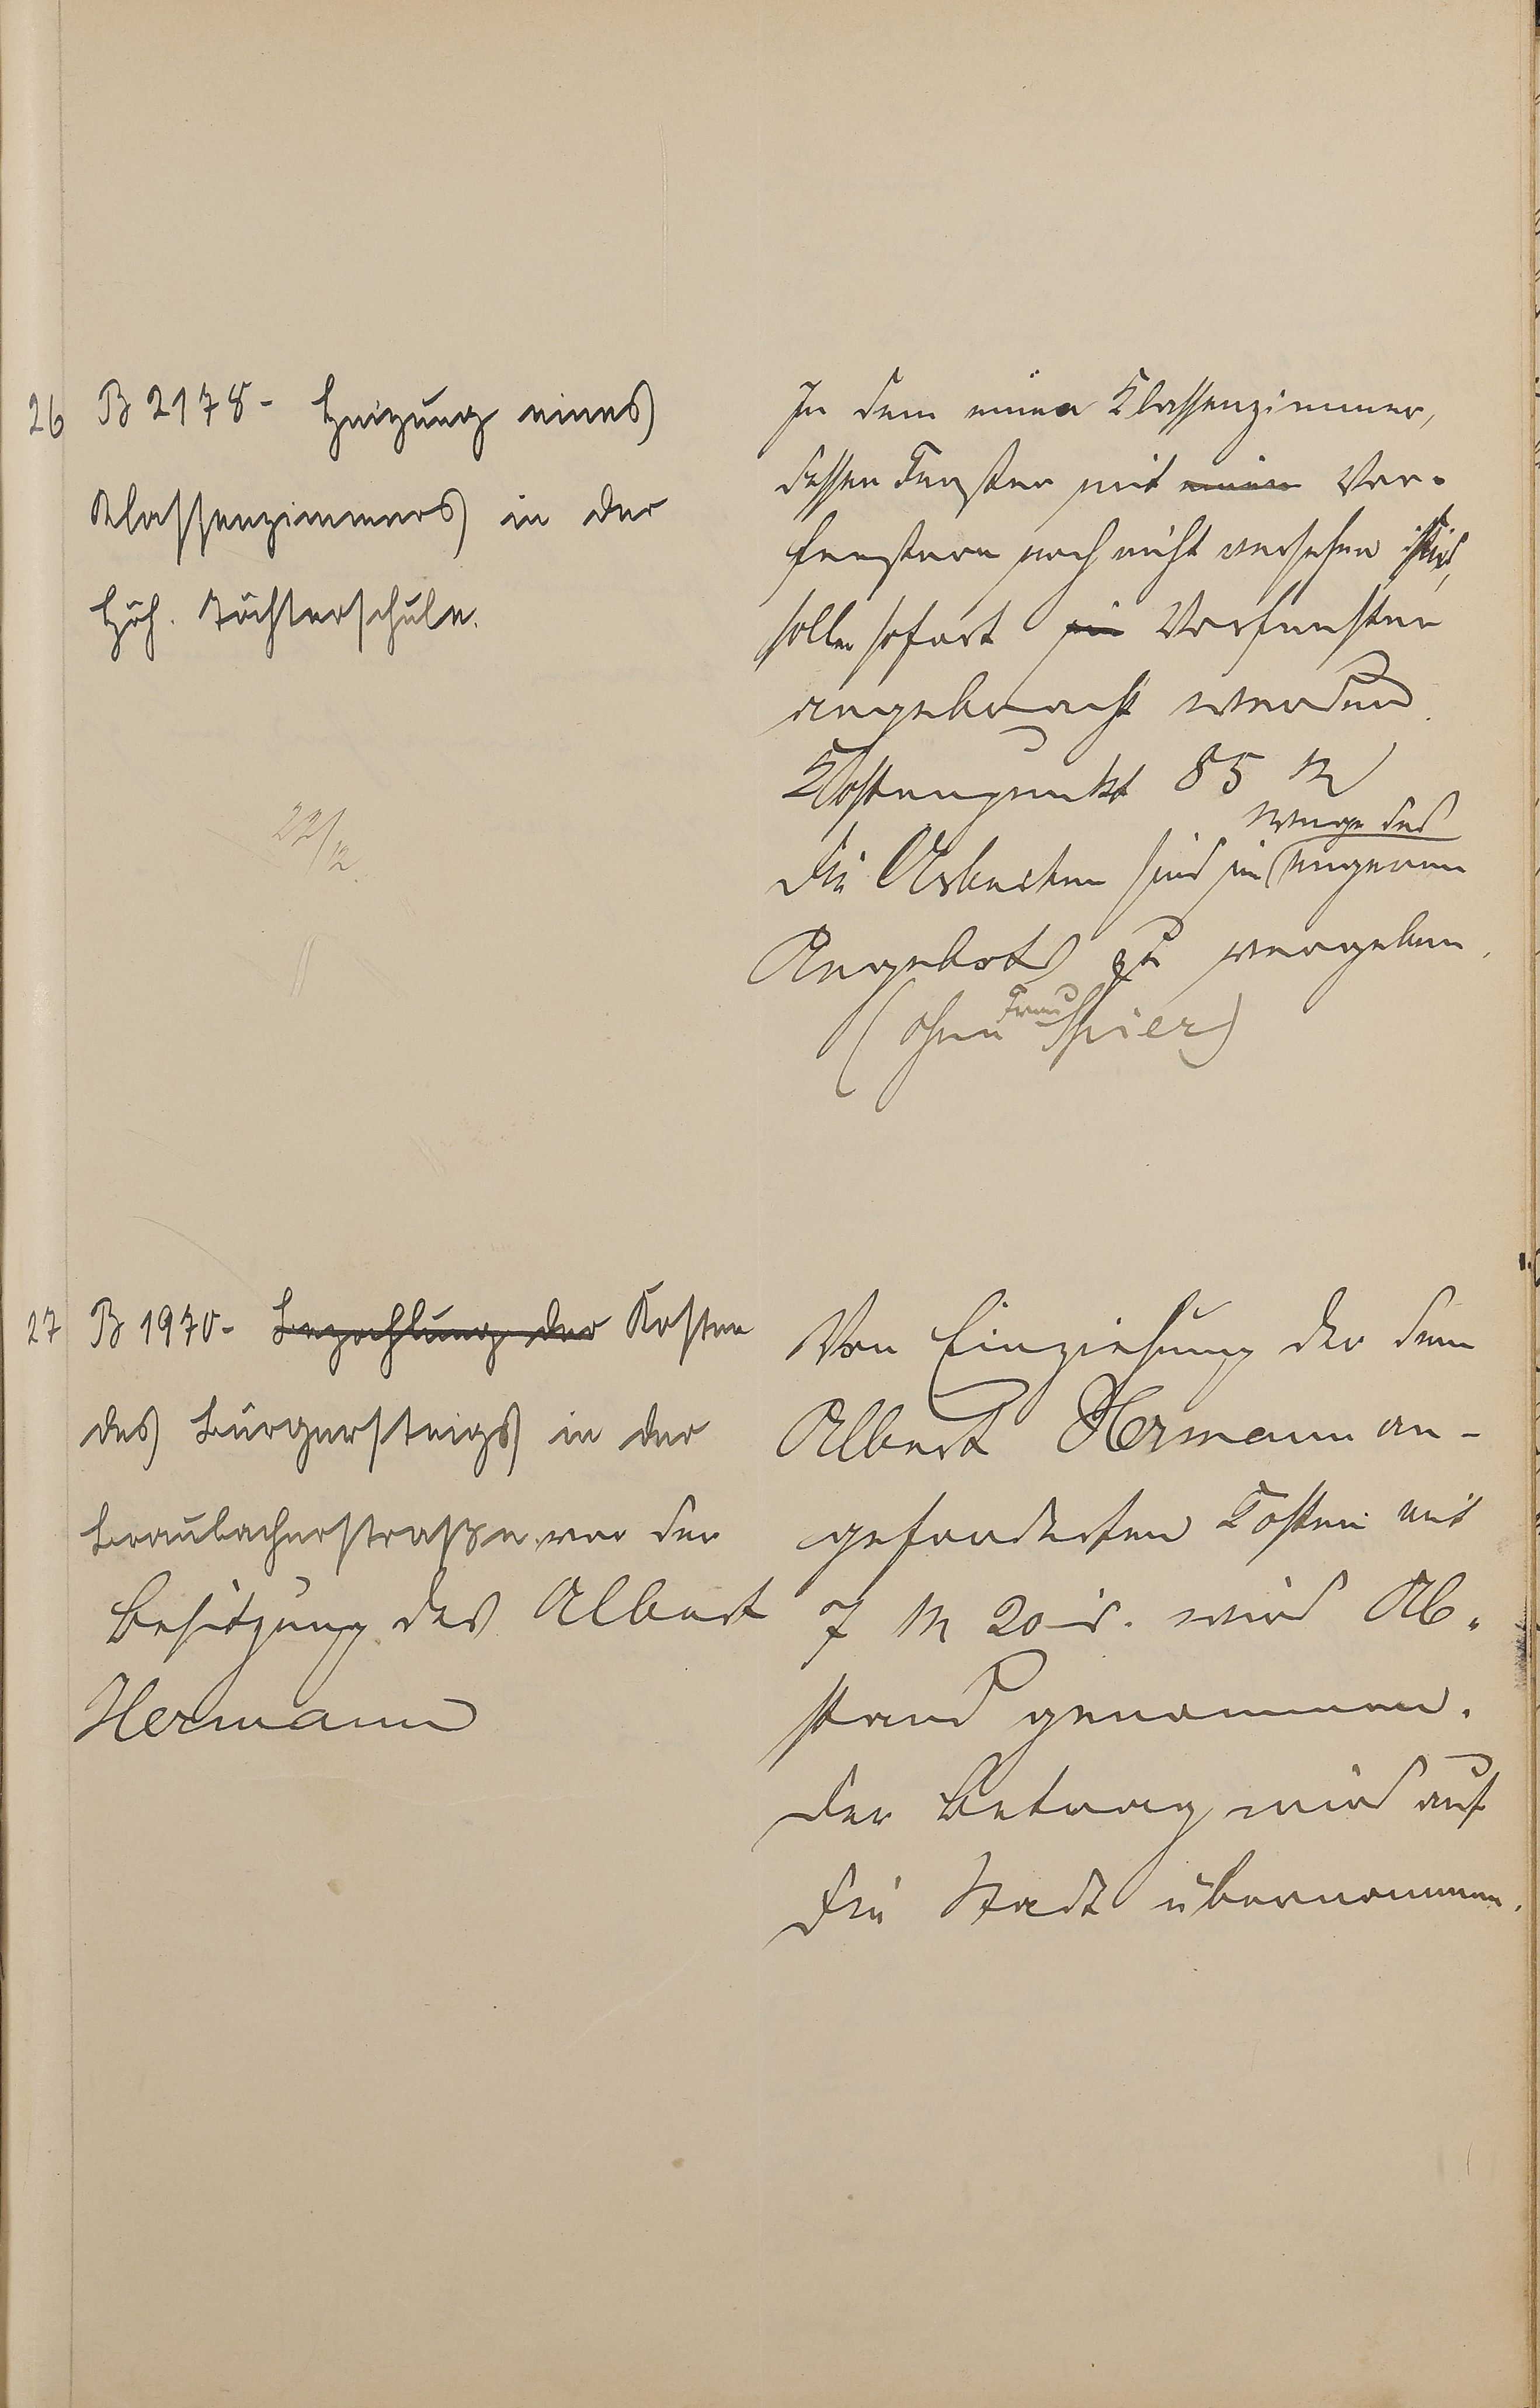 26 B 2178 - Heizung eines
Klassenzimmers in der
Höh. Töchterschule.
22/12.
In dem einen Klassenzimmer,
dessen Fenster mit einem Vor-
fenstern noch nicht versehen ist sind,
sollen sofort ein Vorfenster
angebracht werden.
Kostenpunkt 85 M
Die Arbeiten sind im Wege des engeren
Angebots zu vergeben.
(ohne Frau Spier)
27 B 1970 - Bezahlung der Kosten
des Bürgersteigs in der
Braubacherstraße vor der
Besitzung des Albert
Hermann
Von Einziehung der dem
Albert Hermann an-
geforderten Kosten mit
7 M 20 d. wird Ab-
stand genommen.
Der Betrag wird auf
die Stadt übernommen.